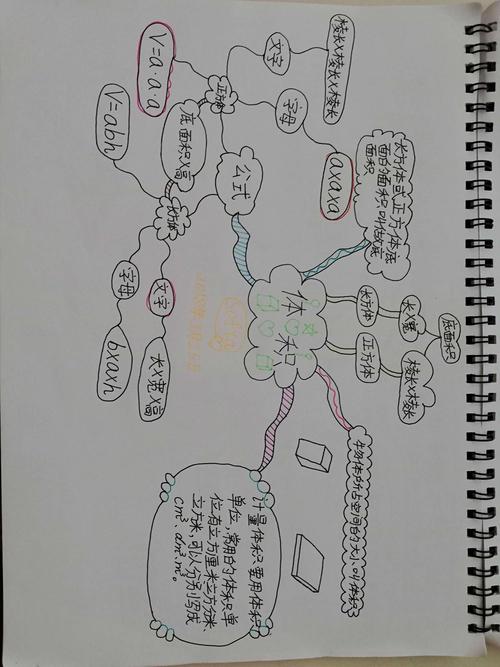 体积
公式
正方体
V=a·a·a
文字
棱长×棱长×棱长
字母
a×a×a
底面积×高
长方体
V=abh
字母
b×a×h
文字
长×宽×高
长方体或正方体底
面的面积叫做底
面积
底面积
长×宽
长方体
棱长×棱长
正方体
物体所占空间的大小叫体积
计量体积要用体积
单位,常用的体积单
位有立方厘米立方分米、
立方米,可以分别写成
cm³、dm³、m³。